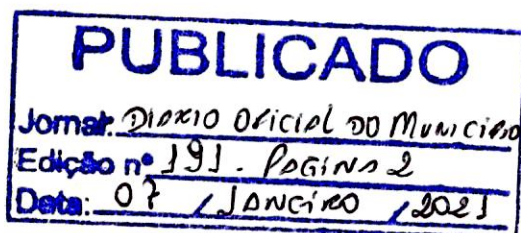 PUBLICADO
Jornal: DIARIO OFICIAL DO MUNICIPIO
Edição nº 191. PAGINA 2
Data: 07 / JANEIRO / 2021